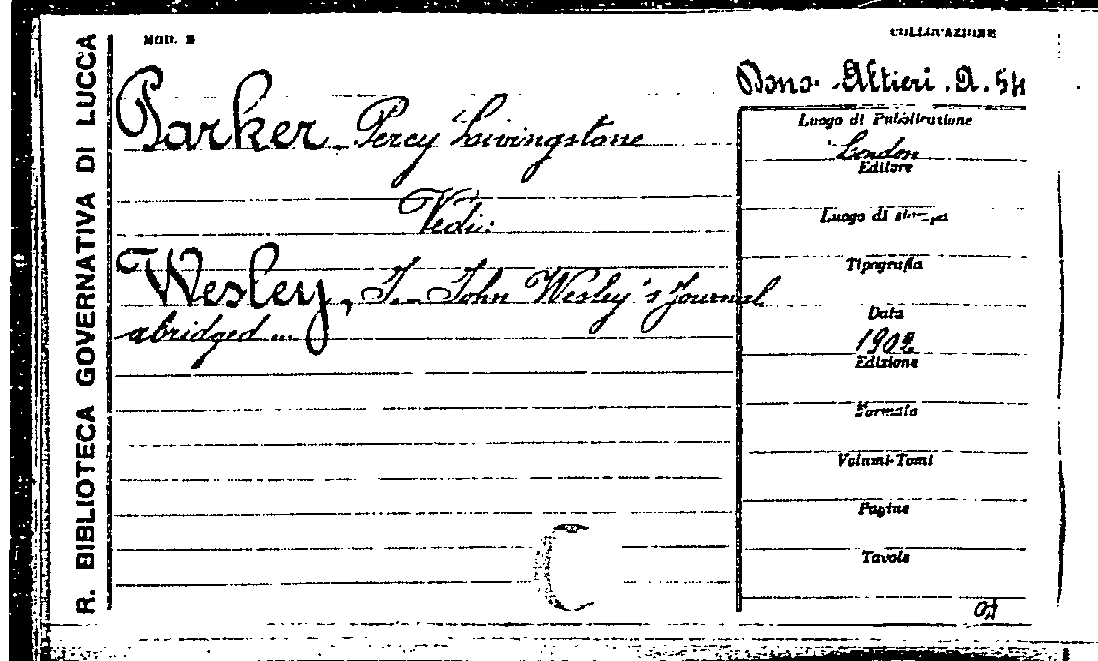 R. BIBLIOTECA GOVERNATIVA DI LUCCA
MOD. B
COLLOCAZIONE
Dono. Altieri. A. 54
Parker Percy Livingstone
Vedi:
Wesley, J. John Wesley's Journal
abridged ...
Luogo di Pubblicazione
London
Editore
Luogo di stampa
Tipografia
Data
1902
Edizione
Formato
Volumi-Tomi
Pagine
Tavole